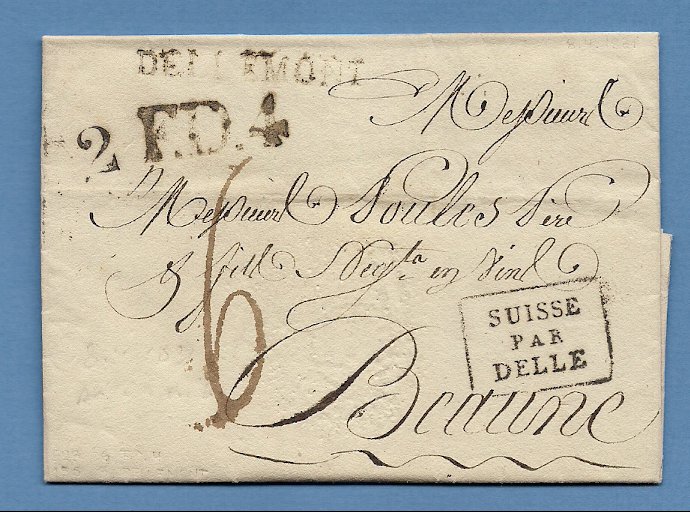 DELLEMONT
2 F.D.4
Messieurs
Messieurs Poulet Père
& fils Negts en Vins
6
SUISSE
PAR
DELLE
Beaune